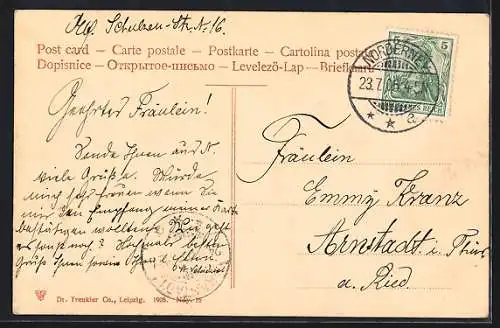 Abs. Schulzen-Str. N. 16.
Post card – Carte postale – Postkarte – Cartolina postale
Dopisnice – Открытое письмо – Levelező-Lap – Briefkaart
5 5
NORDERNEY
23.7.08.4-5
* * a
Geehrtes Fräulein!
Sende Ihnen aus N.
viele Grüße. Würde
mich sehr freuen wenn Sie
mir den Empfang meiner Karte
bestätigen wollten. Wie geht
es sonst noch? Nochmals besten
Gruß Ihnen sowie
Fräulein
Emmy Kranz
Arnstadt i. Thür.
a. Ried.
Dr. Trenkler Co., Leipzig. 1905. Ndy. 15